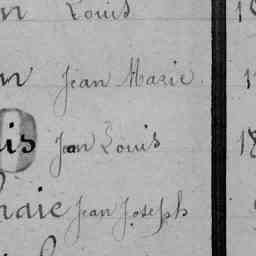 n Louis
n Jean Marie
is Jean Louis 18
raie Jean Joseph